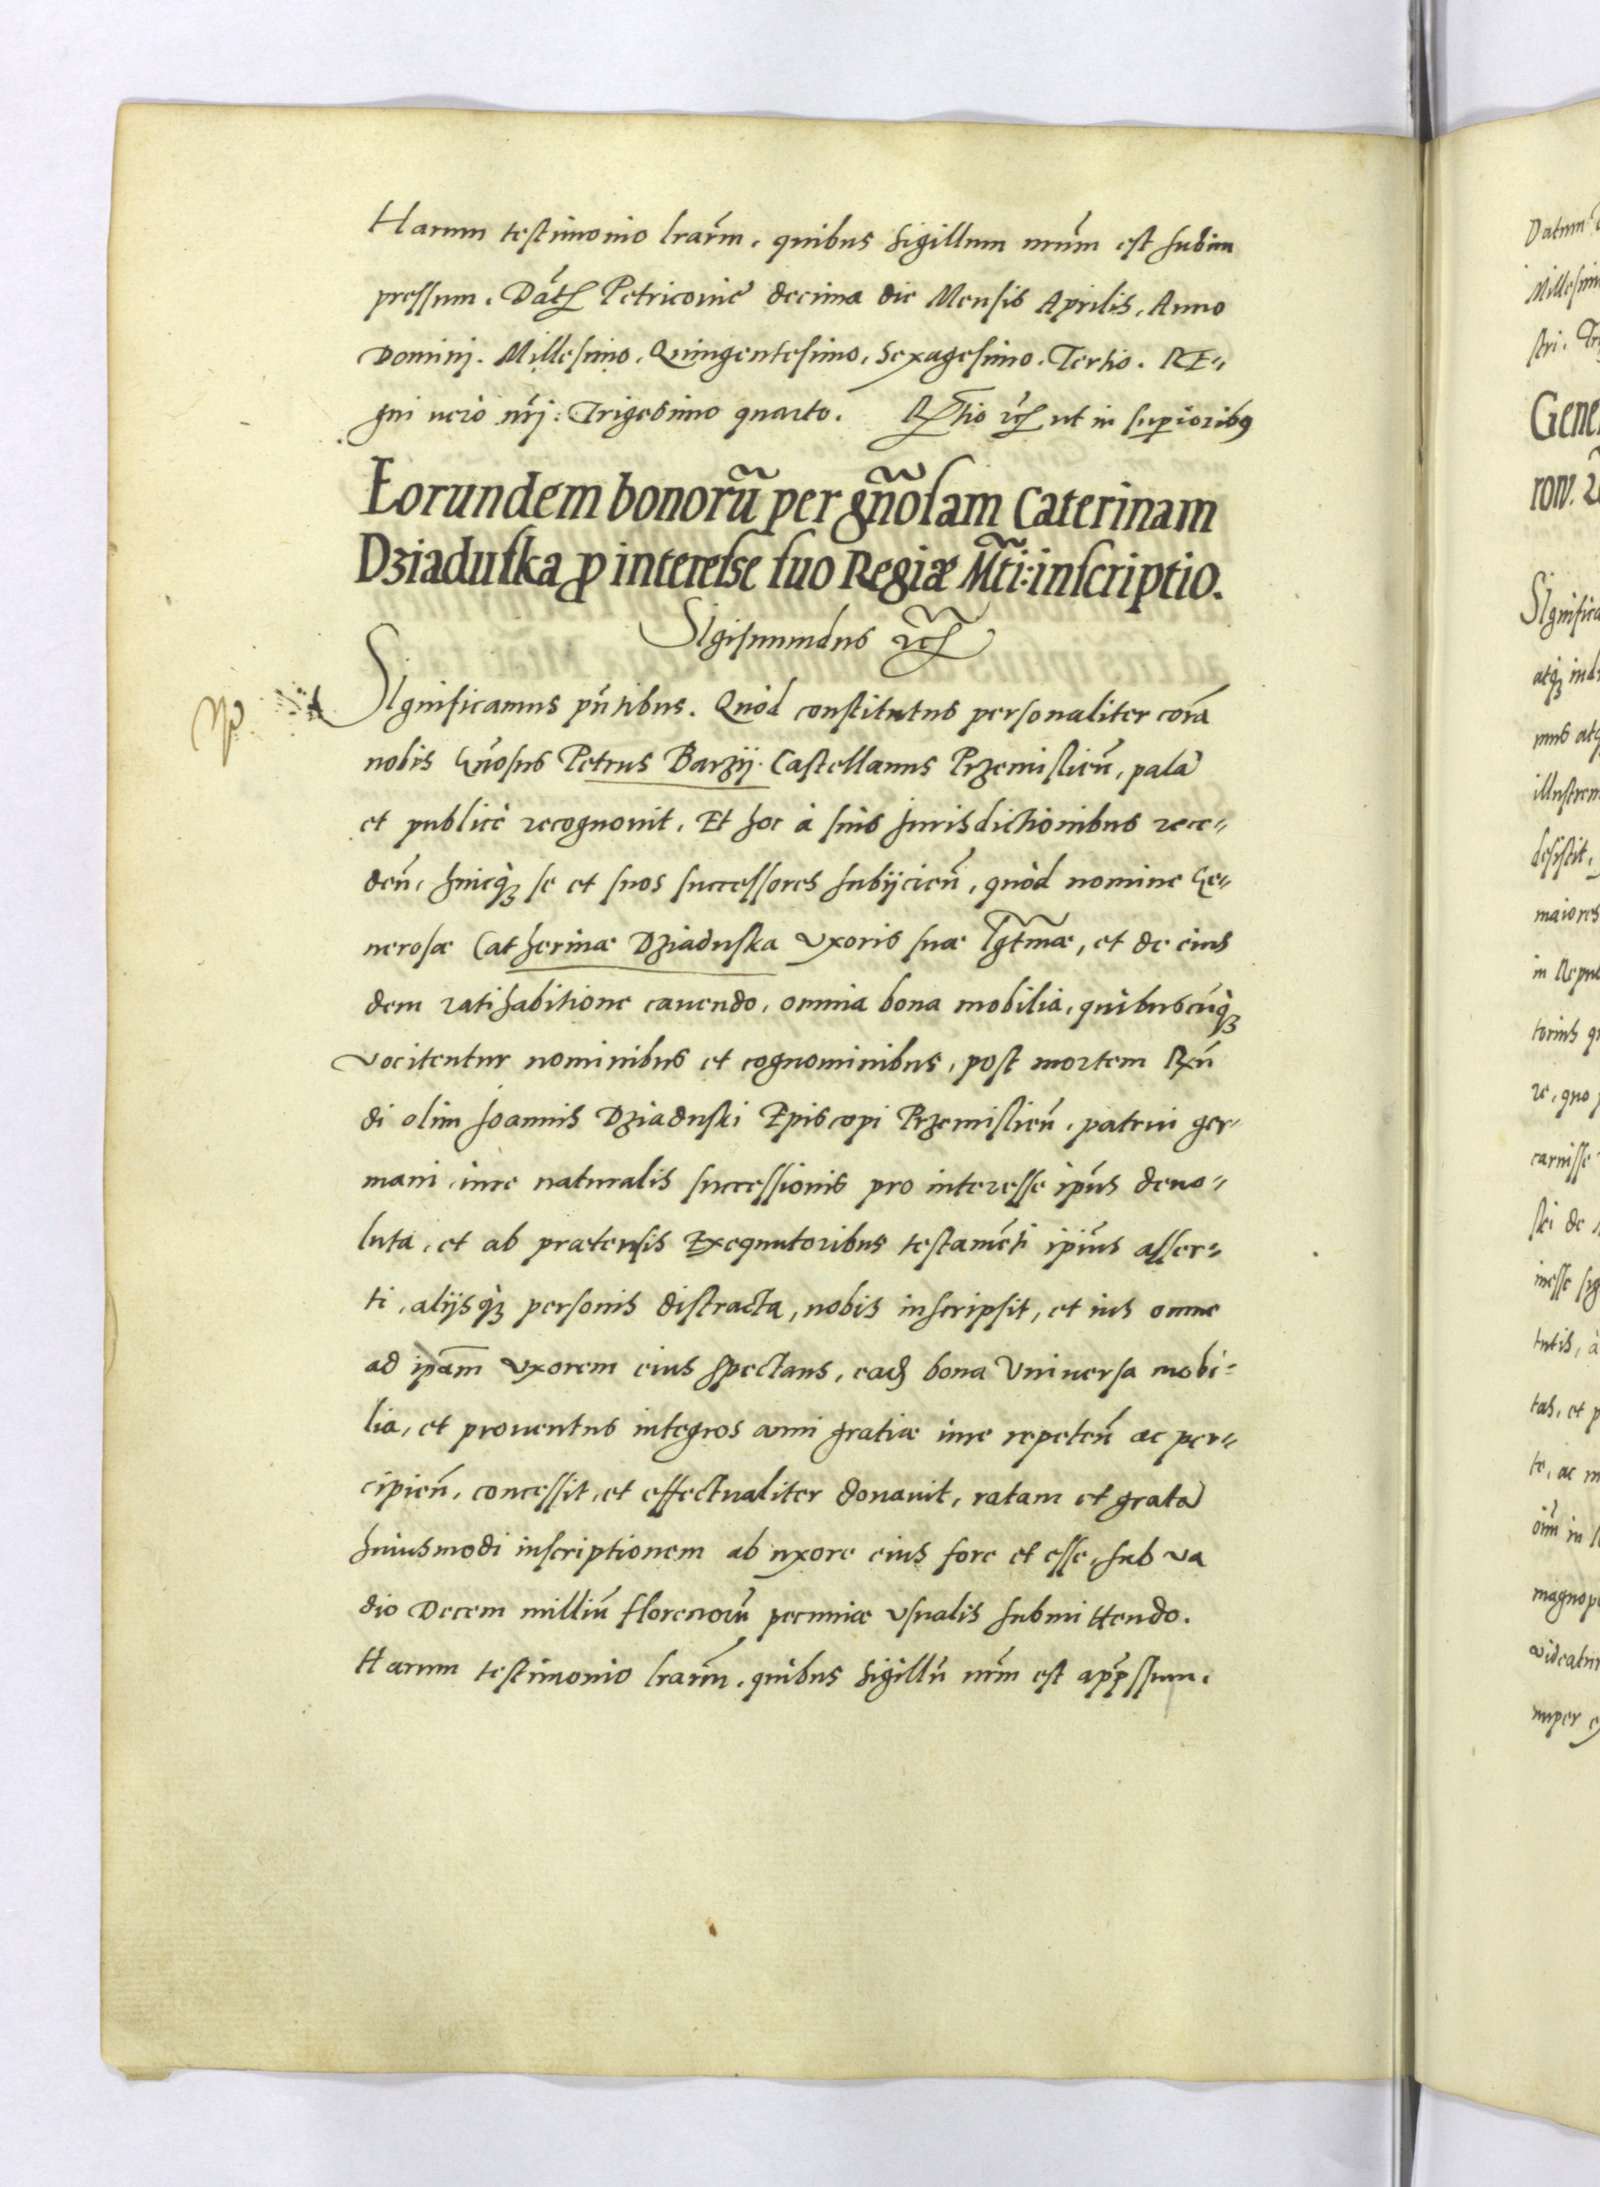 Harum testimonio lrarũm, quibus sigillum nrũm est subim
pressum. Dat̃ Petricoviæ decima die Mensis Aprilis, Anno
Domini. Millesimo. Quingentesimo, Sexagesimo. Tertio. RE-
gni uero nr̃i: Trigesimo quarto. R̃tio etc̃ ut in superioribus
Eorundem bonorũ per gñosam Caterinam
Dziaduska ꝓ interesse suo Regiæ Mt̃i: inscriptio.
SIgismundus etc̃
SIgnificamus pñtibus. Quòd constitutus personaliter corã
nobis Gñosus Petrus Barzij. Castellanus Przemislieñ, palã
et publicè recognouit, Et hoc à suis Iurisdictionibus rece-
deñ, huicq̃ꝫ se et suos successores subijcieñ, quòd nomine Ge-
nerosæ Catherinæ Dziaduska Vxoris suæ lgt̃mæ, et de eius
dem ratihabitione cauendo, omnia bona mobilia, quibuscũqꝫ
vocitentur nominibus et cognominibus, post mortem Rẽn
di olim Ioannis Dziaduski Episcopi Przemislieñ, patrui ger-
mani, iure naturalis successionis pro interesse ip̃ius deuo-
luta, et ab prætensis Exequutoribus testamẽti ip̃ius asser-
ti, alijsq̀ꝫ personis distracta, nobis inscripsit, et ius omne
ad ip̃am Vxorem eius spectans, ead̃ bona Vniuersa mobi-
lia, et prouentus integros anni gratiæ iure repeteñ ac per-
cipieñ, concessit, et effectualiter donauit, ratam et gratã
huiusmodi inscriptionem ab uxore eius fore et esse, sub va
dio Decem milliũ florenorũ pecuniæ Vsualis submittendo.
Harum testimonio lrarũm, quibus sigillũ nrũm est app̃ssum.